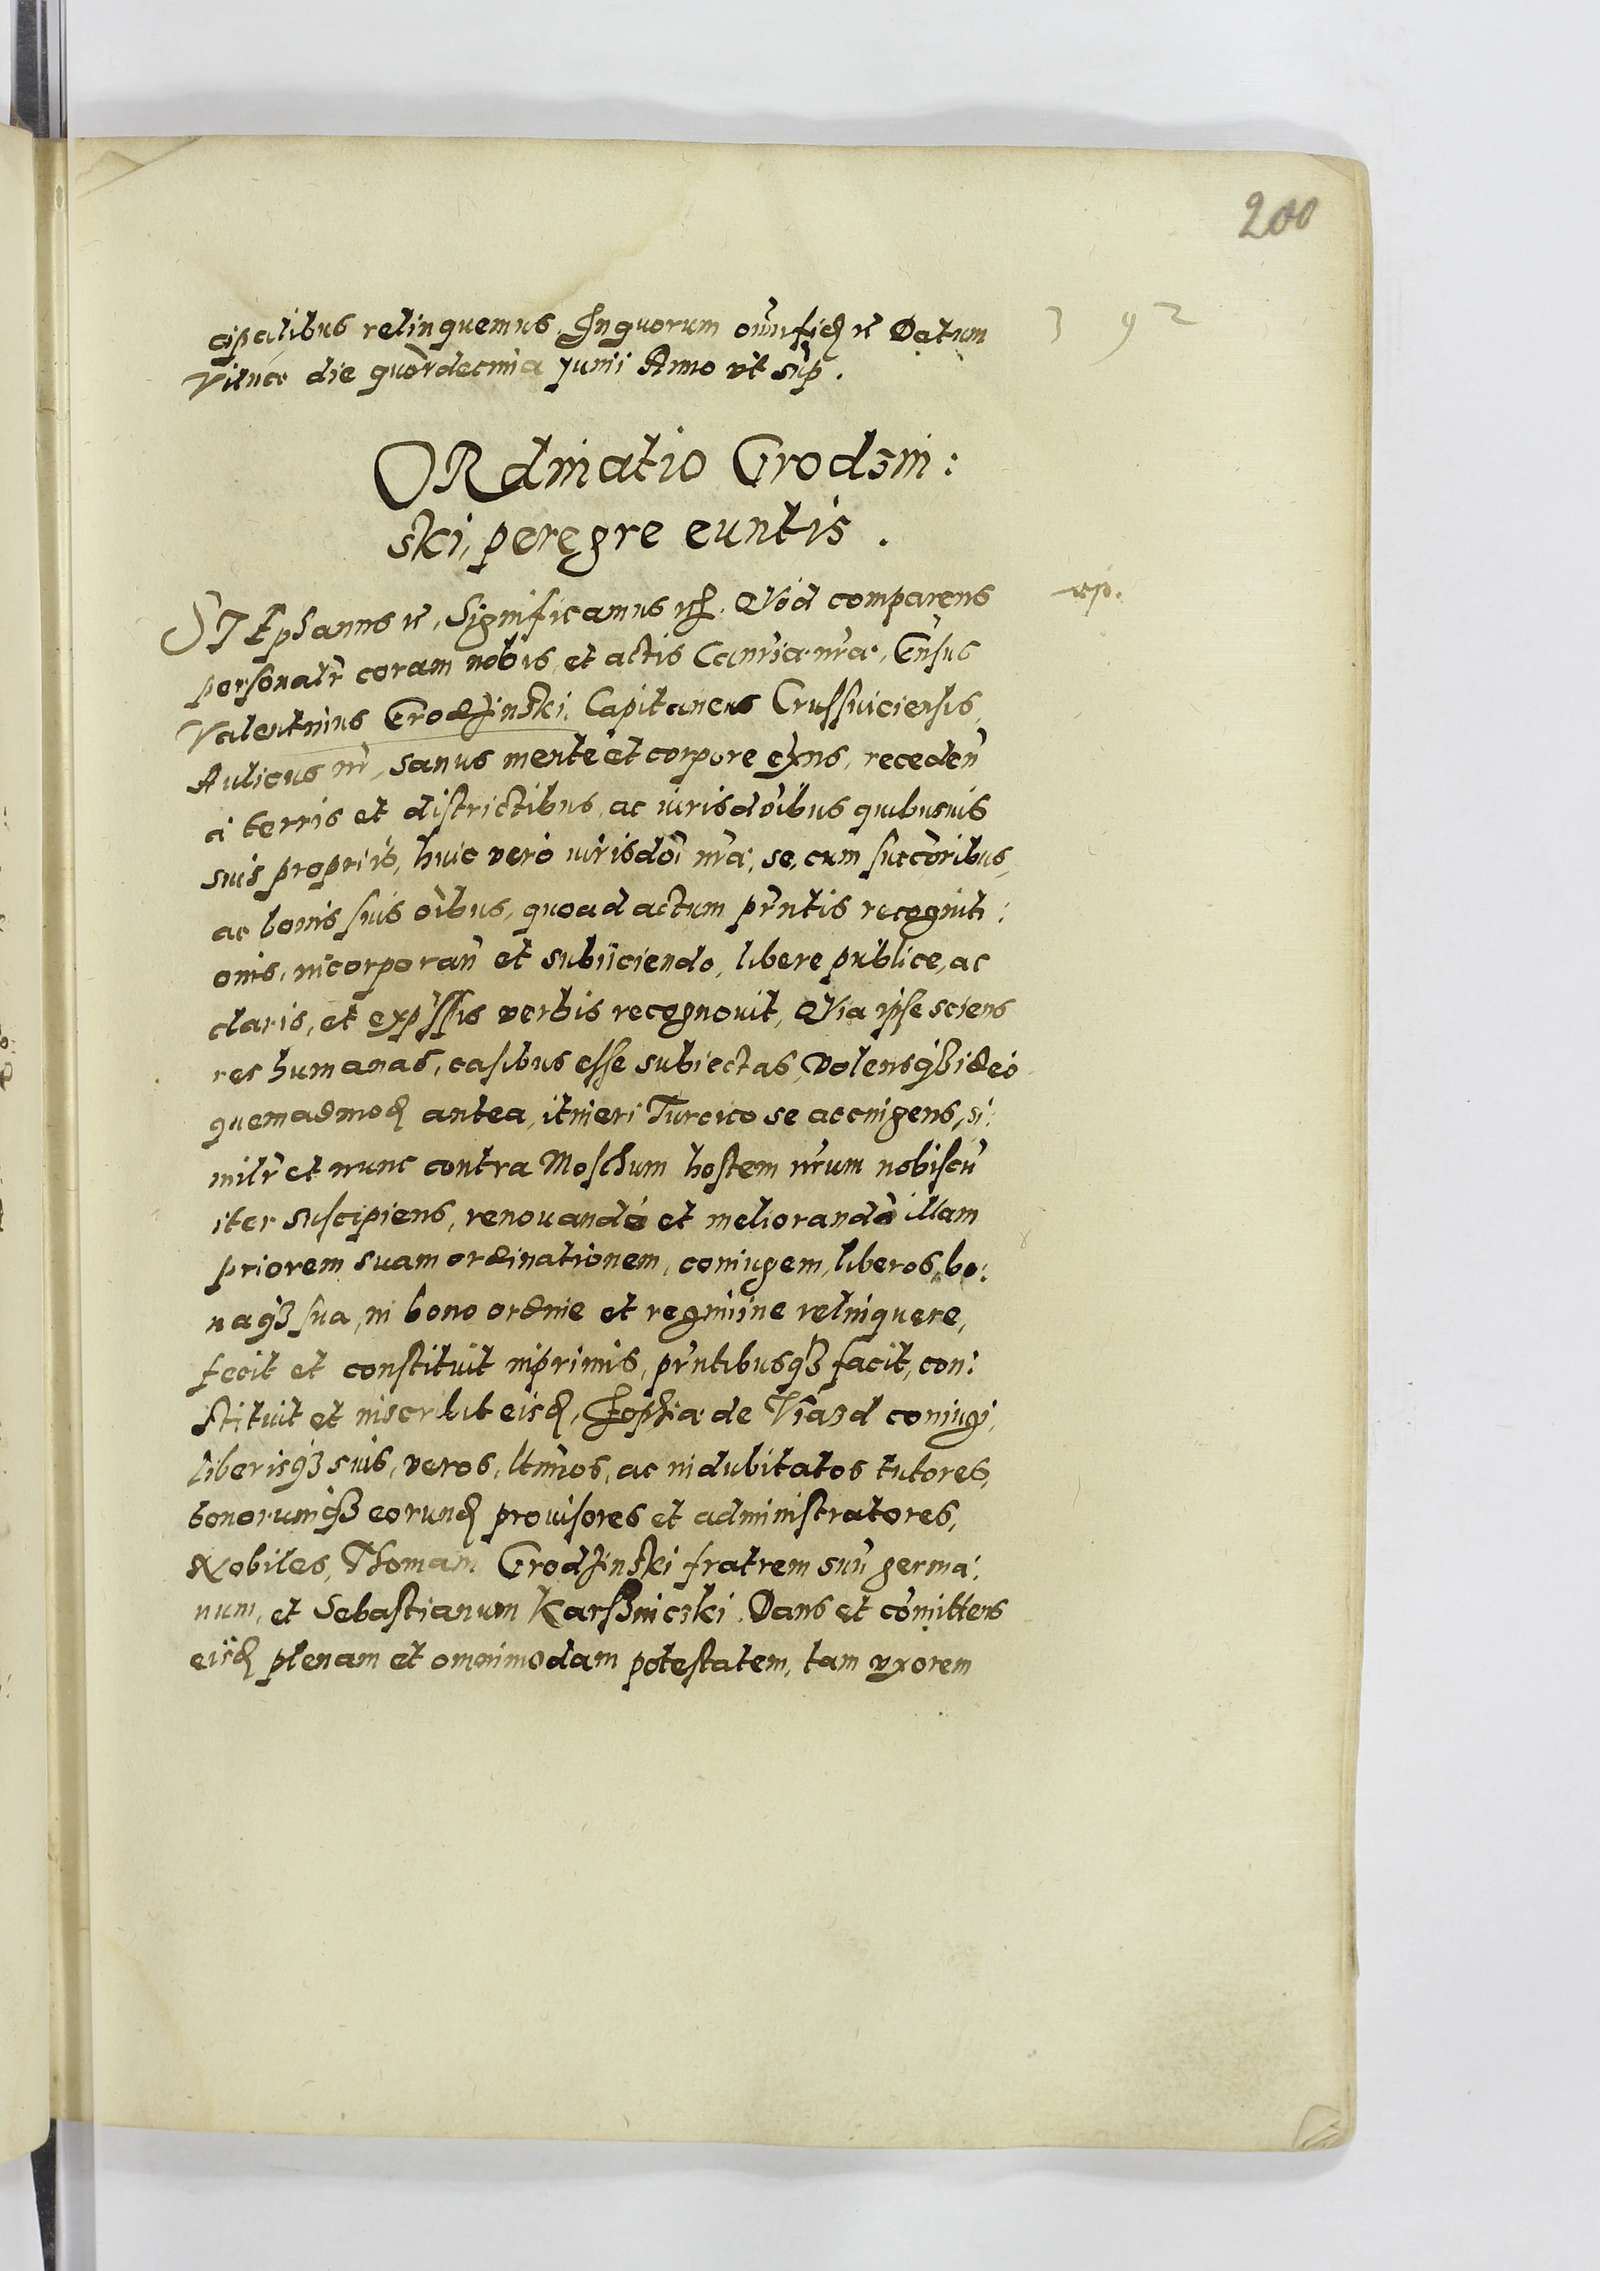 200
392
cipalibus relinquemus, Inquorum omn̄ fidē etc Datum
Vilnae die quardecima Junii Anno vt sup̄.
ORdinatio Grodzin:
ski, peregre euntis.
STEphanus etc, Significamus etc. Quōd comparens
rp.
personalr̄ coram nobis, et actis Canr̄iæ nr̄æ, Gn̄sus
Valentinus Grodzinski, Capitaneus Crusswiciensis,
Aulicus nr̄, sanus mente et corpore exn̄s, receden̄
a terris et districtibus, ac iurisdōibus quibusuis
suis proprijs, huic vero iurisdōi nr̄æ, se, cum succōribus,
ac bonis suis oībus, quoad actum pn̄tis recogniti:
onis, incorporan̄ et subijciendo, libere publice, ac
claris, et exp̄ssis verbis recognouit, Quia ipse sciens
res humanas, casibus esse subiectas, Volensq3 ideo
quemadmod̄ antea, itineri Turcico se accingens, si:
milr̄ et nunc contra Moschum hostem nr̄um nobiscū
iter suscipiens, renouando et meliorando illam
priorem suam ordinationem, coniugem, liberos, bo:
naq3 sua, in bono ordine et regimine relinquere,
fecit et constituit inprimis, pn̄tibusq3 facit, con:
stituit et inscribit eisd̄, Zophiæ de Viazd coniugi,
liberisq3 suis, veros, ltīmos, ac indubitatos tutores,
bonorumq3 eorund̄ prouisores et administratores,
Nobiles, Thomam Grodzinski fratrem suū germa:
num, et Sebastianum Karsznicski. Dans et cōmittens
eisd̄ plenam et omnimodam potestatem, tam vxorem